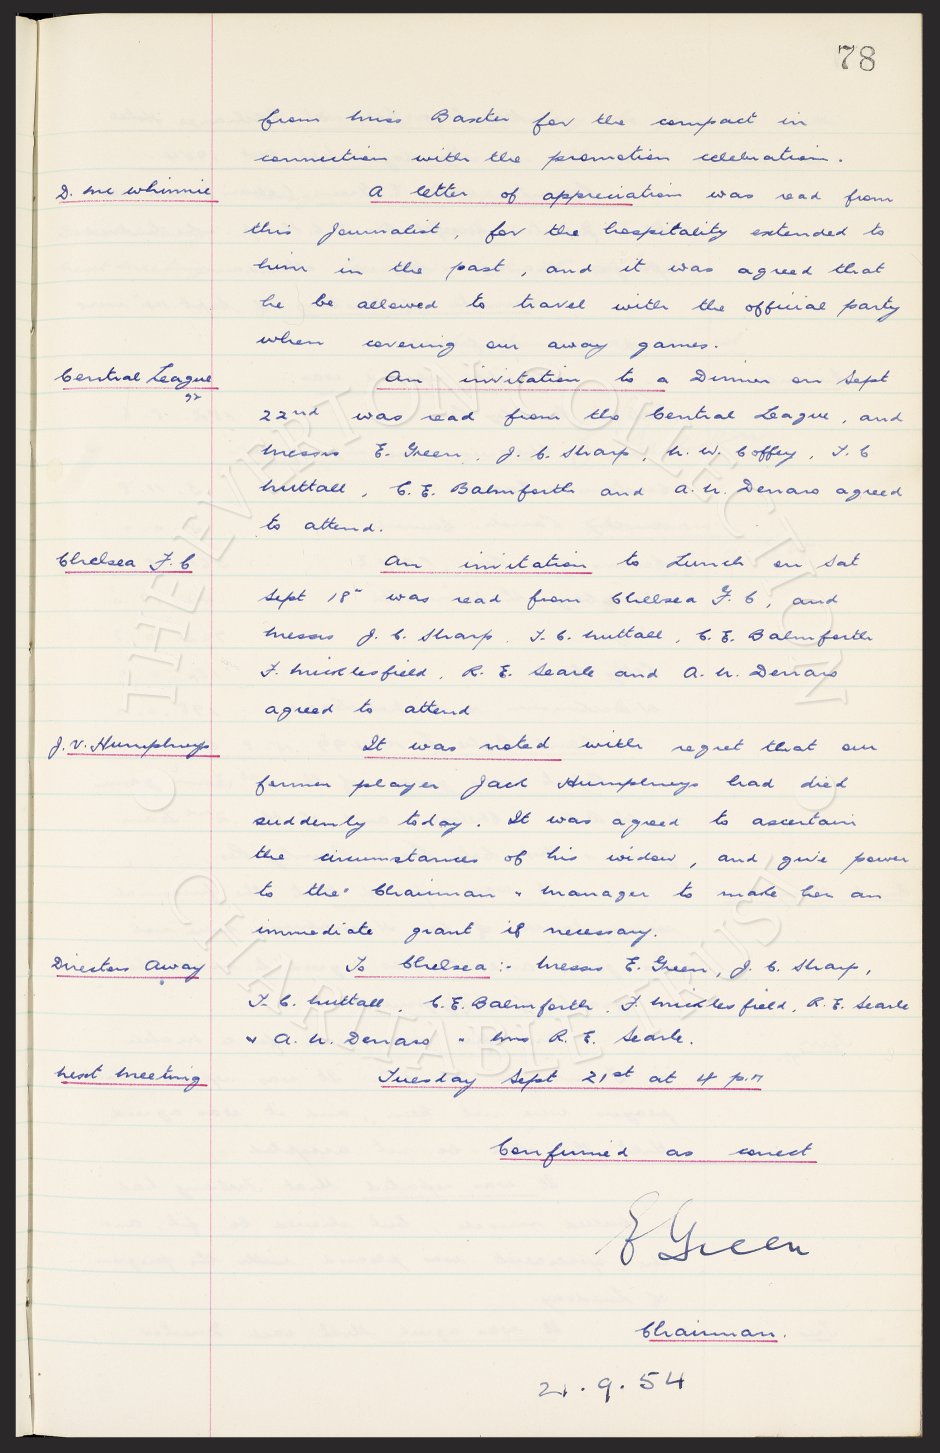 78
from Miss Baxter for the compact in
connection with the promotion celebration.
D. Mc Whinnie A letter of appreciation was read from
this Journalist, for the hospitality extended to
him in the past, and it was agreed that
he be allowed to travel with the official party
when covering our away games.
Central League An invitation to a Dinner on Sept
22nd was read from the Central League, and
Messrs E. Green, J. C. Sharp, N. W. Coffey, T. C
Nuttall, C. E. Balmforth and A. N. Denaro agreed
to attend.
Chelsea F.C An invitation to Lunch on Sat
Sept 18" was read from Chelsea F.C, and
Messrs J. C. Sharp, T. C. Nuttall, C. E. Balmforth
F. Micklesfield, R. E. Searle and A. N. Denaro
agreed to attend
J. V. Humphreys It was noted with regret that our
former player Jack Humphreys had died
suddenly today. It was agreed to ascertain
the circumstances of his widow, and give power
to the Chairman " Manager to make her an
immediate grant if necessary.
Directors Away To Chelsea :- Messrs E. Green, J. C. Sharp,
T. C. Nuttall, C. E. Balmforth, F. Micklesfield, R. E. Searle
" A. N. Denaro " Mrs R. E. Searle.
Next Meeting Tuesday Sept 21st at 4 p.m
Confirmed as correct
E Green
Chairman.
21.9.54
© THE EVERTON COLLECTION CHARITABLE TRUST